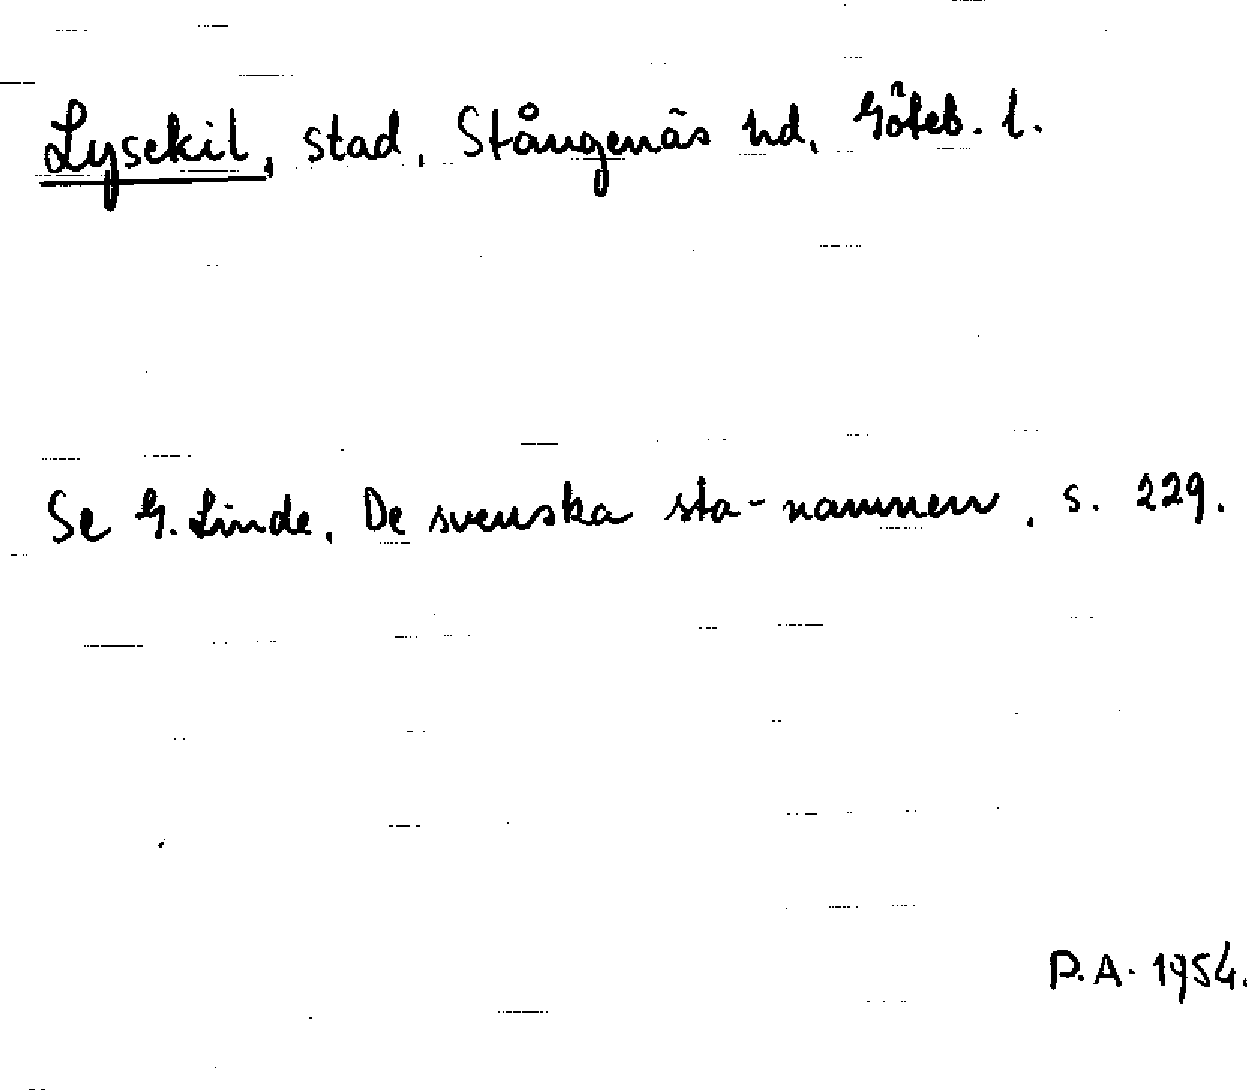 Lysekil, stad, Stångenäs hd, Göteb. l.
Se G. Linde, De svenska sta-namnen, s. 229.
P.A. 1954.